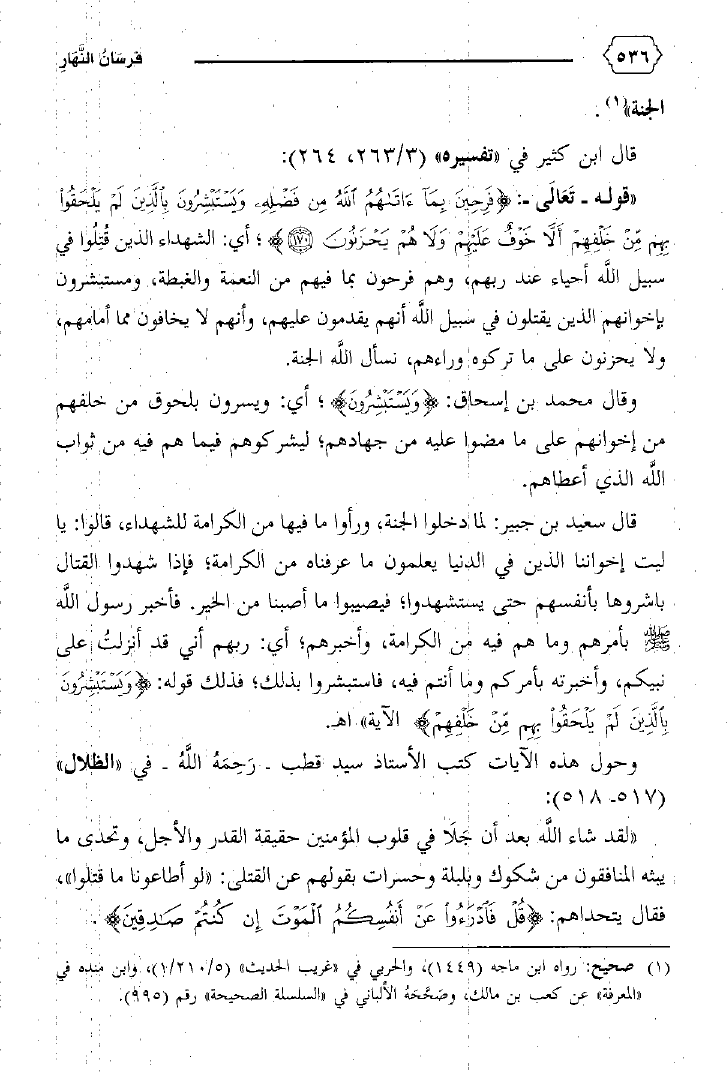 ٥٣٦ فرسان النَّهَارِ
الجنة»(١).
قال ابن كثير في «تفسيره» (٢٦٣/٣، ٢٦٤):
«قوله ـ تَعَالَى ـ: ﴿فَرِحِينَ بِمَآ ءَاتَىٰهُمُ ٱللَّهُ مِن فَضْلِهِۦ وَيَسْتَبْشِرُونَ بِٱلَّذِينَ لَمْ يَلْحَقُوا۟
بِهِم مِّنْ خَلْفِهِمْ أَلَّا خَوْفٌ عَلَيْهِمْ وَلَا هُمْ يَحْزَنُونَ ﴿١٧٠﴾﴾؛ أي: الشهداء الذين قُتِلُوا في
سبيل اللَّه أحياء عند ربهم، وهم فرحون بما فيهم من النعمة والغبطة، ومستبشرون
بإخوانهم الذين يقتلون في سبيل اللَّه أنهم يقدمون عليهم، وأنهم لا يخافون مما أمامهم،
ولا يحزنون على ما تركوه وراءهم، نسأل اللَّه الجنة.
وقال محمد بن إسحاق: ﴿وَيَسْتَبْشِرُونَ﴾؛ أي: ويسرون بلحوق من خلفهم
من إخوانهم على ما مضوا عليه من جهادهم؛ ليشركوهم فيما هم فيه من ثواب
اللَّه الذي أعطاهم.
قال سعيد بن جبير: لما دخلوا الجنة، ورأوا ما فيها من الكرامة للشهداء، قالوا: يا
ليت إخواننا الذين في الدنيا يعلمون ما عرفناه من الكرامة؛ فإذا شهدوا القتال
باشروها بأنفسهم حتى يستشهدوا؛ فيصيبوا ما أصبنا من الخير. فأخبر رسول اللَّه
ﷺ بأمرهم وما هم فيه من الكرامة، وأخبرهم؛ أي: ربهم أني قد أنزلتُ على
نبيكم، وأخبرته بأمركم وما أنتم فيه، فاستبشروا بذلك؛ فذلك قوله: ﴿وَيَسْتَبْشِرُونَ
بِٱلَّذِينَ لَمْ يَلْحَقُوا۟ بِهِم مِّنْ خَلْفِهِمْ﴾ الآية» اهـ.
وحول هذه الآيات كتب الأستاذ سيد قطب ـ رَحِمَهُ اللَّهُ ـ في «الظلال»
(٥١٧ـ ٥١٨):
«لقد شاء اللَّه بعد أن جَلَا في قلوب المؤمنين حقيقة القدر والأجل، وتحدى ما
يبثه المنافقون من شكوك وبلبلة وحسرات بقولهم عن القتلى: «لو أطاعونا ما قتلوا»،
فقال يتحداهم: ﴿قُلْ فَٱدْرَءُوا۟ عَنْ أَنفُسِكُمُ ٱلْمَوْتَ إِن كُنتُمْ صَـٰدِقِينَ﴾.
(١) صحيح: رواه ابن ماجه (١٤٤٩)، والحربي في «غريب الحديث» (١/٢١٠/٥)، وابن منده في
«المعرفة» عن كعب بن مالك، وصَحَّحَهُ الألباني في «السلسلة الصحيحة» رقم (٩٩٥).